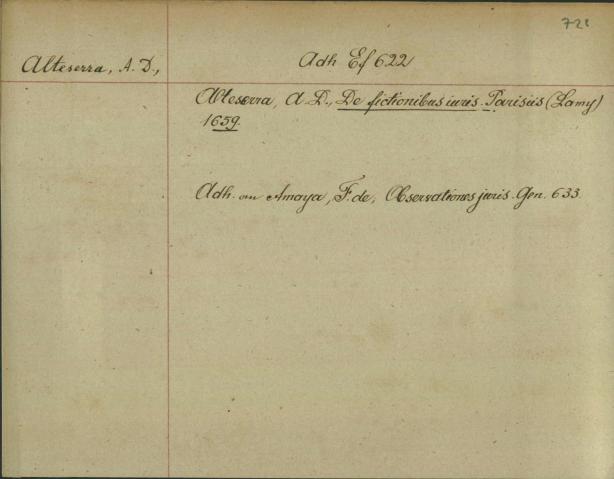 721
Alteserra, A. D.,
Adh Ef 622
Alteserra, A. D., De fictionibus iuris. Parisiis (Lamy)
1659.
Adh. an Amaya, F. de, Observationes juris. Gen. 633